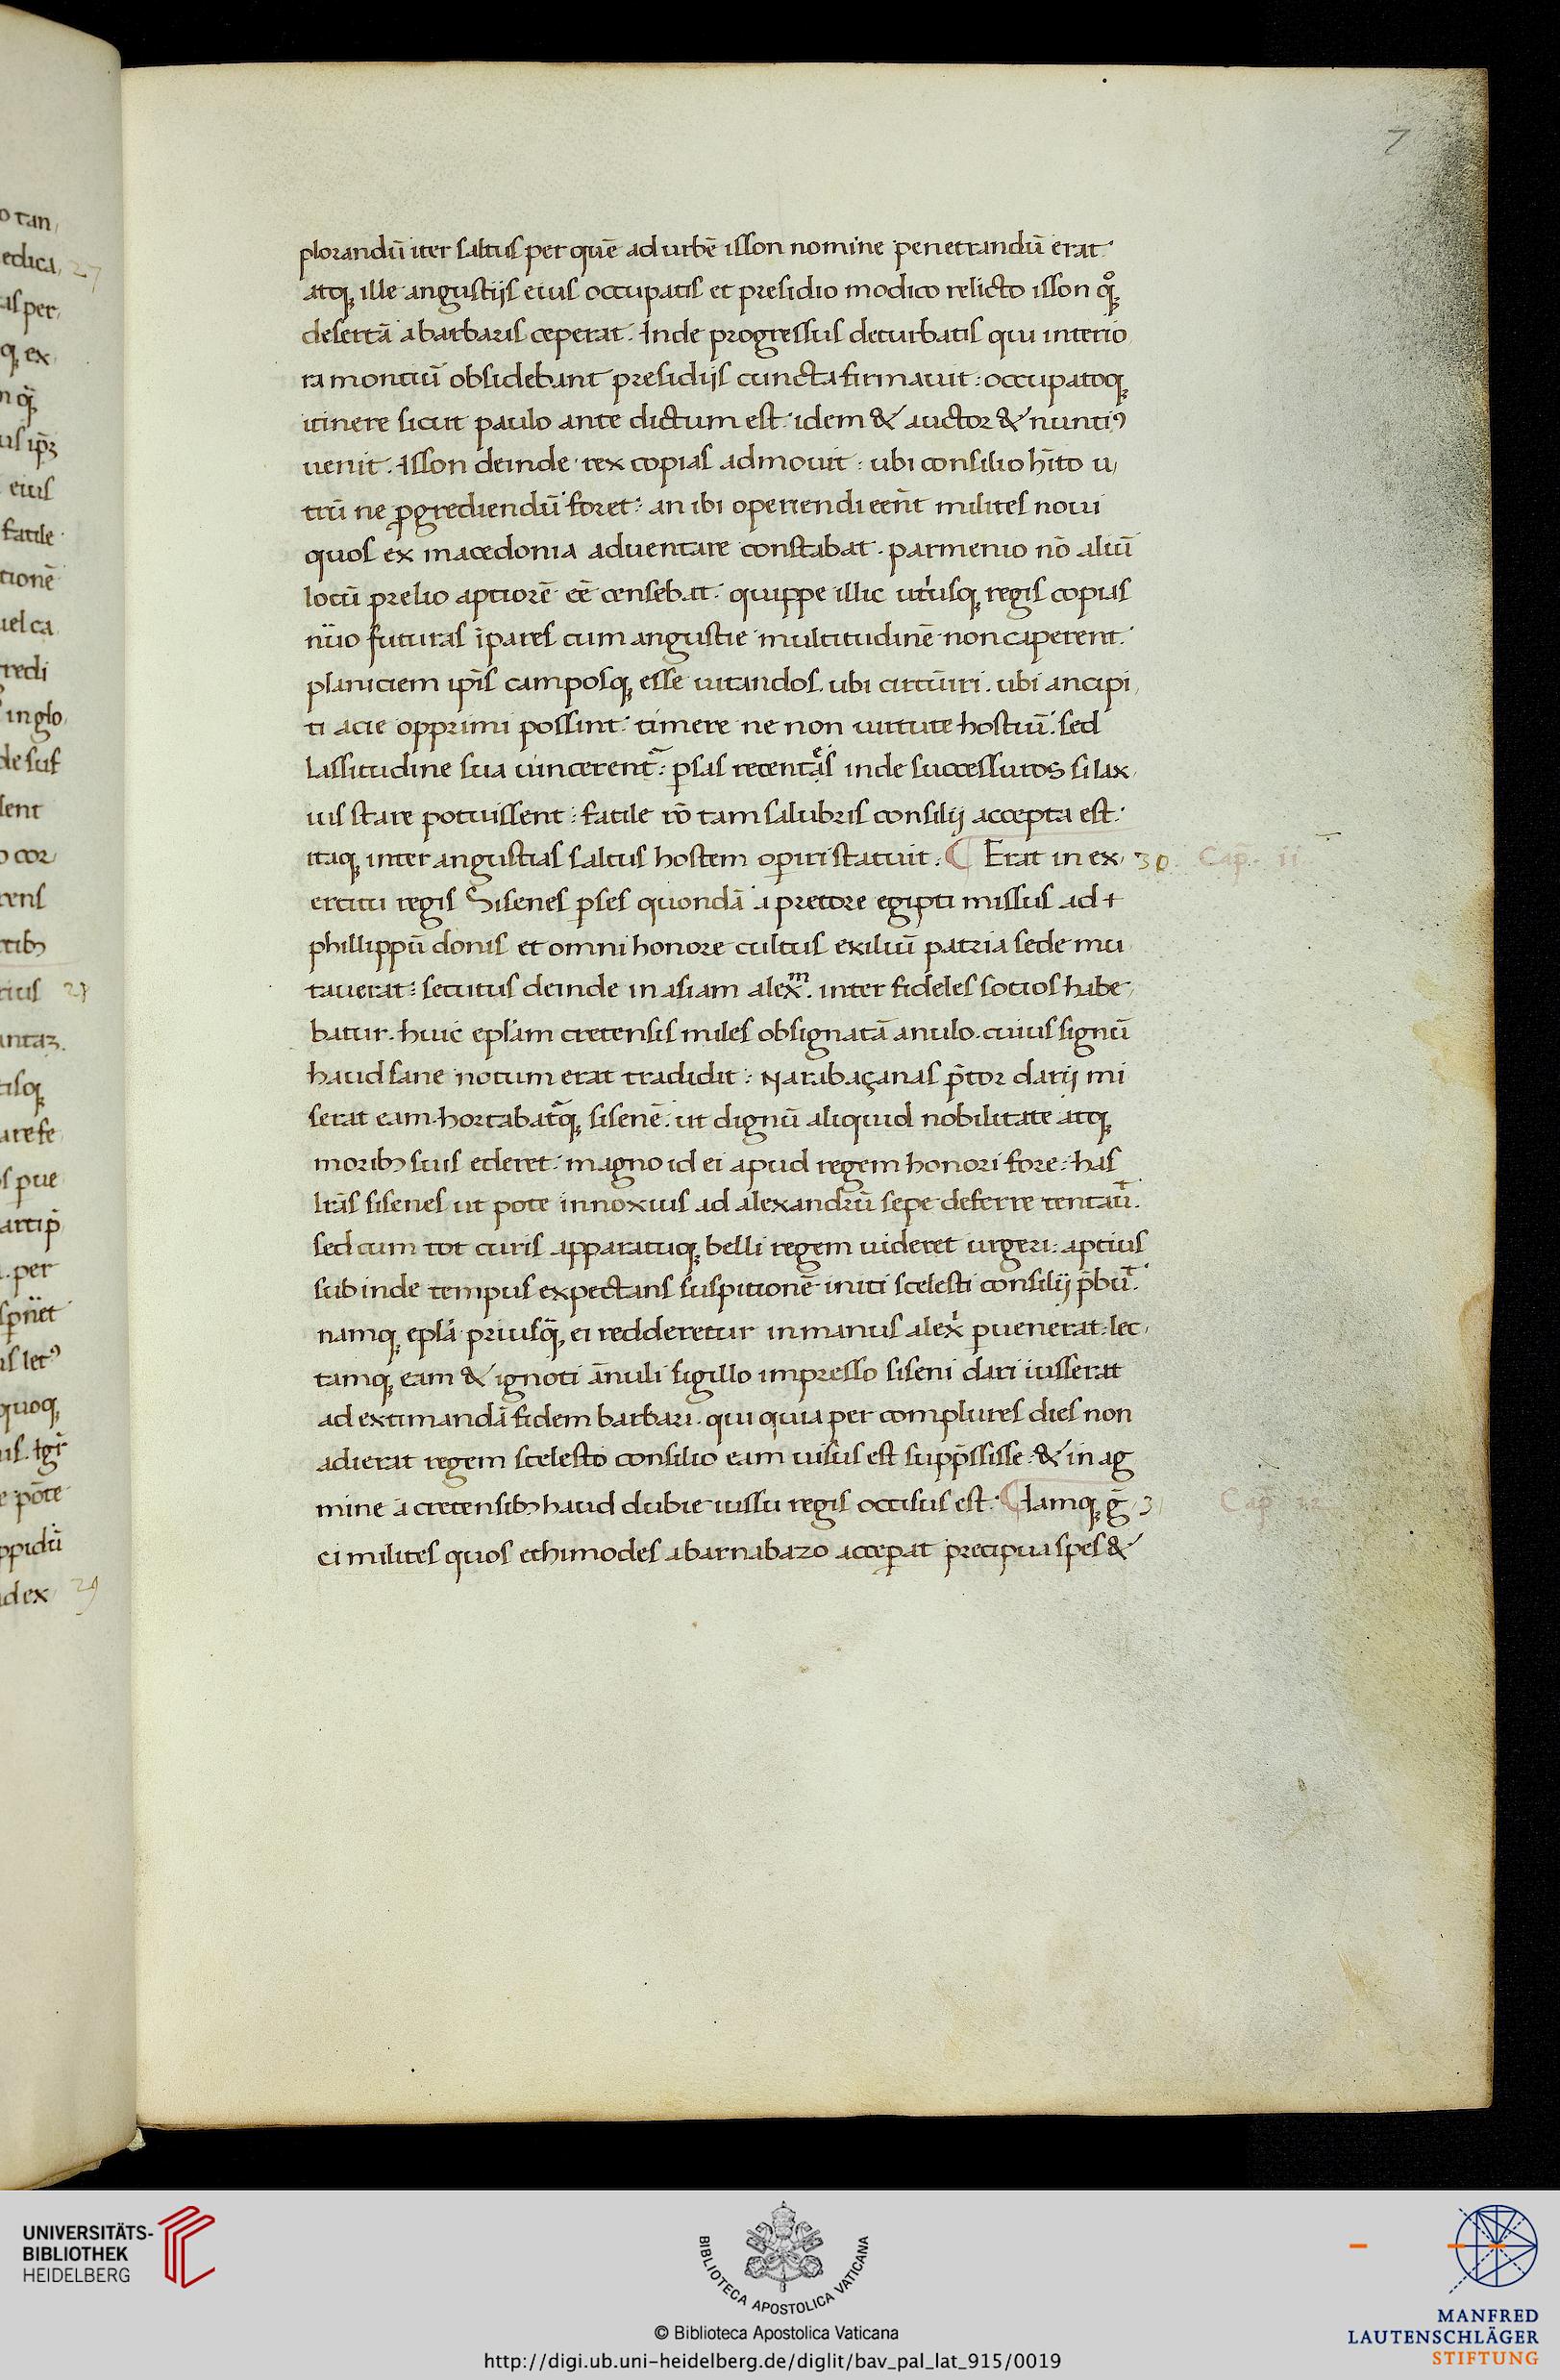 7
plorandū iter saltus per quē ad urbē isson nomine penetrandū erat
atq; ille angustijs eius occupatis et presidio modico relicto isson qͦq;
desertā a barbaris ceperat. Inde progressus deturbatis qui interio
ra montiū obsidebant presidijs cuncta firmauit: occupatoq;
itinere sicut paulo ante dictum est. idem & auctor & nuntiꝰ
uenit. Isson deinde rex copias admouit: ubi consilio hīto u
trū ne ꝓgrediendū foret: an ibi operiendi eēnt milites noui
quos ex macedonia aduentare constabat. parmenio nō aliū
locū prelio aptiorē eē censebat: quippe illic utriusq; regis copias
nūo futuras īpares cum angustie multitudinē non caperent.
planiciem ip̄is camposq; esse uitandos. ubi circūiri. ubi ancipi
ti acie opprimi possint: timere ne non uirtute hostiū. sed
lassitudine sua uincerent᷑: ꝑsas recentes inde successuros si lax
ius stare potuissent: facile rō tam salubris consilij accepta est.
itaq; inter angustias saltus hostem oꝑiri statuit. ¶ Erat in ex 30 Cap̄. ii
ercitu regis Sisenes ꝑses quondā a pretore egipti missus ad
phillippū donis et omni honore cultus exiliū patria sede mu
tauerat: secutus deinde in asiam alexᵐ. inter fideles socios habe
batur. huic eplām cretensis miles obsignatā anulo. cuius signū
haud sane notum erat tradidit: Narabaçanas p̄tor darij mi
serat eam. hortabat᷑q; sisenē. ut dignū aliquid nobilitate atq;
moribꝫ suis ederet: magno id ei apud regem honori fore: has
lrās sisenes ut pote innoxius ad alexandrū sepe deferre tentauͭ.
sed cum tot curis apparatuq; belli regem uideret urgeri: aptius
sub inde tempus expectans suspitionē initi scelesti consilij p̄buͭ.
namq; eplā priusq̄; ei redderetur in manus alexͥ ꝑuenerat: lec
tamq; eam & ignoti ānuli sigillo impresso siseni dari iusserat
ad extimandā fidem barbari. qui quia per complures dies non
adierat regem scelesto consilio eam uisus est supp̄ssisse. & in ag
mine a cretensibꝫ haud dubie iussu regis occisus est. ¶ Iamq; ḡ 3 Cap̄
ci milites quos ethimodes abarnabazo acceꝑat precipua spes &
UNIVERSITÄTS-
BIBLIOTHEK
HEIDELBERG
BIBLIOTECA APOSTOLICA VATICANA
© Biblioteca Apostolica Vaticana
http://digi.ub.uni-heidelberg.de/diglit/bav_pal_lat_915/0019
MANFRED
LAUTENSCHLÄGER
STIFTUNG